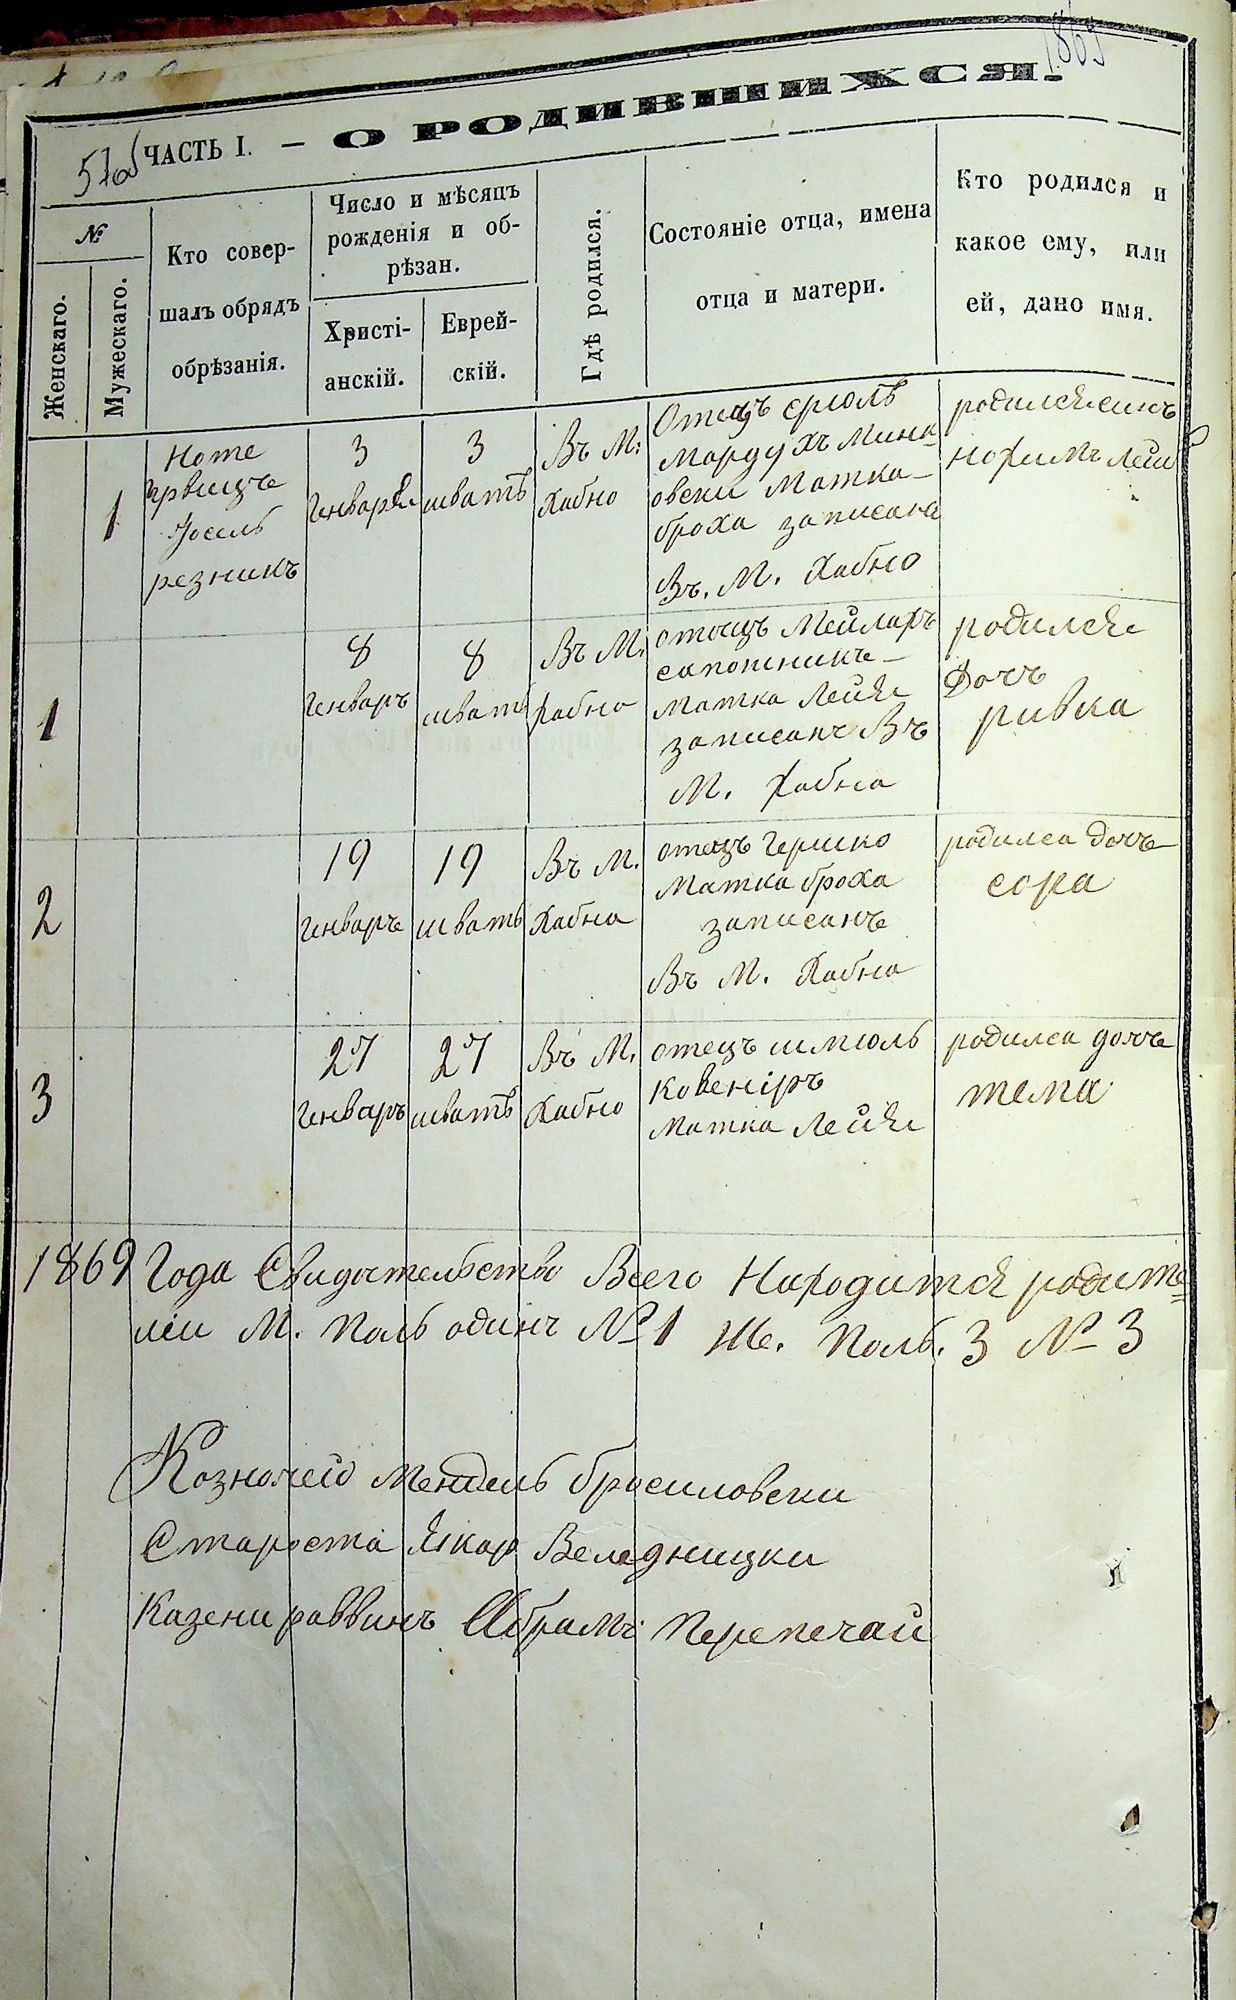 1869
ЧАСТЬ I. — О РОДИВШИХСЯ.
№
Женскаго.
Мужескаго.
Кто совер-
шалъ обрядъ
обрѣзанія.
Число и мѣсяцъ
рожденія и об-
рѣзан.
Христі-
анскій.
Еврей-
скій.
Гдѣ родился.
Состояніе отца, имена
отца и матери.
Кто родился и
какое ему, или
ей, дано имя.
1
Ноте
Іосель
резникъ
3
Генваря
3
шватъ
Въ М:
Хабно
Отецъ Срюль
Мордухъ Минк
овски Матка
броха записане
Въ. М. Хабно
родился синъ
Нохимъ Лейб
1
8
Генваръ
8
шватъ
Въ М.
Хабно
отецъ Мейлахъ
сапожникъ
Матка Лейя
записанъ Въ
М. Хабна
родился
Дочъ
ривка
2
19
Генваръ
19
шватъ
Въ М.
Хабна
отецъ Гершко
Матка броха
записанъ
Въ М. Хабна
родилса дочъ
сора
3
27
Генваръ
27
шватъ
Въ М.
Хабно
отецъ шмюль
Ковенiръ
Матка Лейя
родилса дочъ
тема
1869 Года Свидотельство Всего Находится родите=
ліи М. Полъ одинъ № 1 Же. Полъ. 3 № 3
Козночей Мендель бросиловски
Староста Янкар Веледницки
Казени раввинъ Абрамъ Перепечай